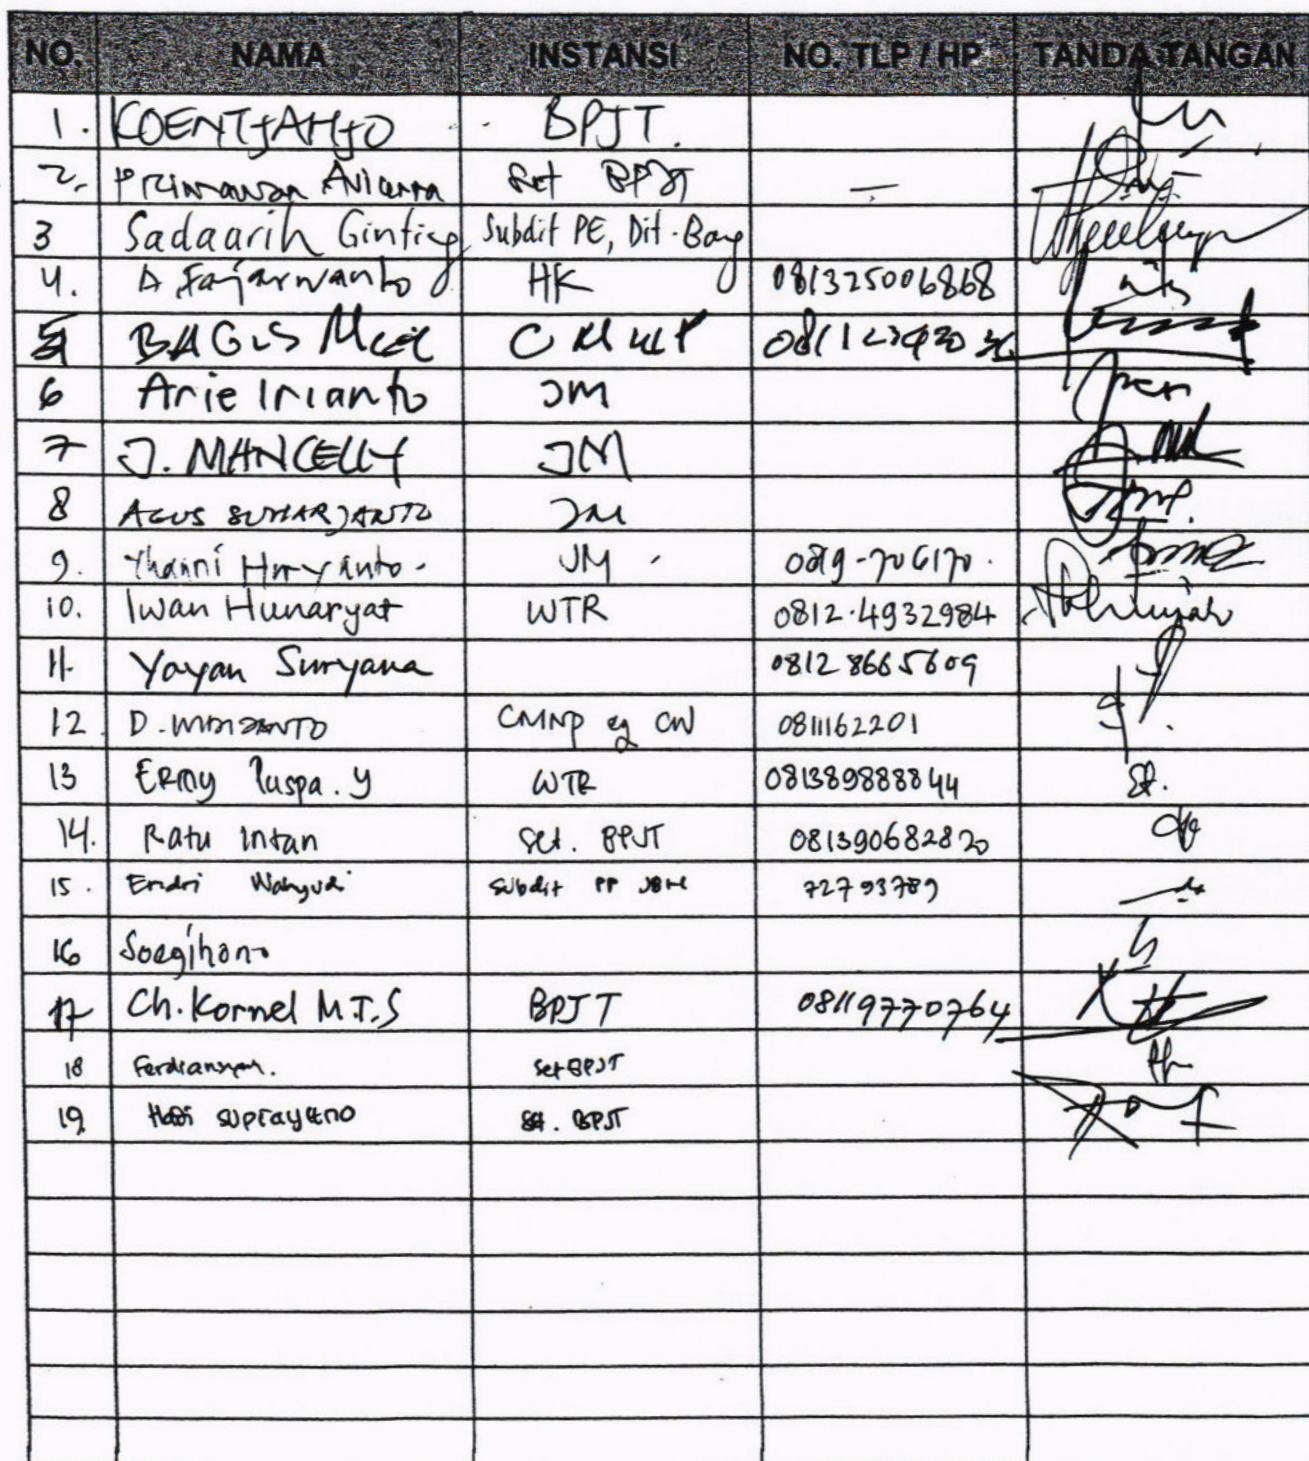 NO. NAMA INSTANSI NO. TLP / HP TANDA TANGAN
1. KOENTJAHJO BPJT.
2. Primawan Avicenna Set BPJT —
3 Sadaarih Ginting Subdit PE, Dit. Bang
4. A Fajarwanto HK 081325006868
5 BAGUS
6 Arie Irianto JM
7 J. MANCELLY JM
8 AGUS SUHARJANTO JM
9. Yhanni Haryanto. JM 0819-706170.
10. Iwan Hunaryat WTR 0812.4932984
11. Yayan Suryana 0812 8665609
12. D. CMNP 0811162201
13 ERNY Puspa. Y WTR 081389888844
14. Ratu Intan Set. BPJT 081390682820
15. Endri Wahyudi Subdit PP 72793789
16 Soegihono
17 Ch. Kornel M.T.S BPJT 08119770764
18 Ferdiansyah. Set BPJT
19. Hadi suprayitno Set. BPJT